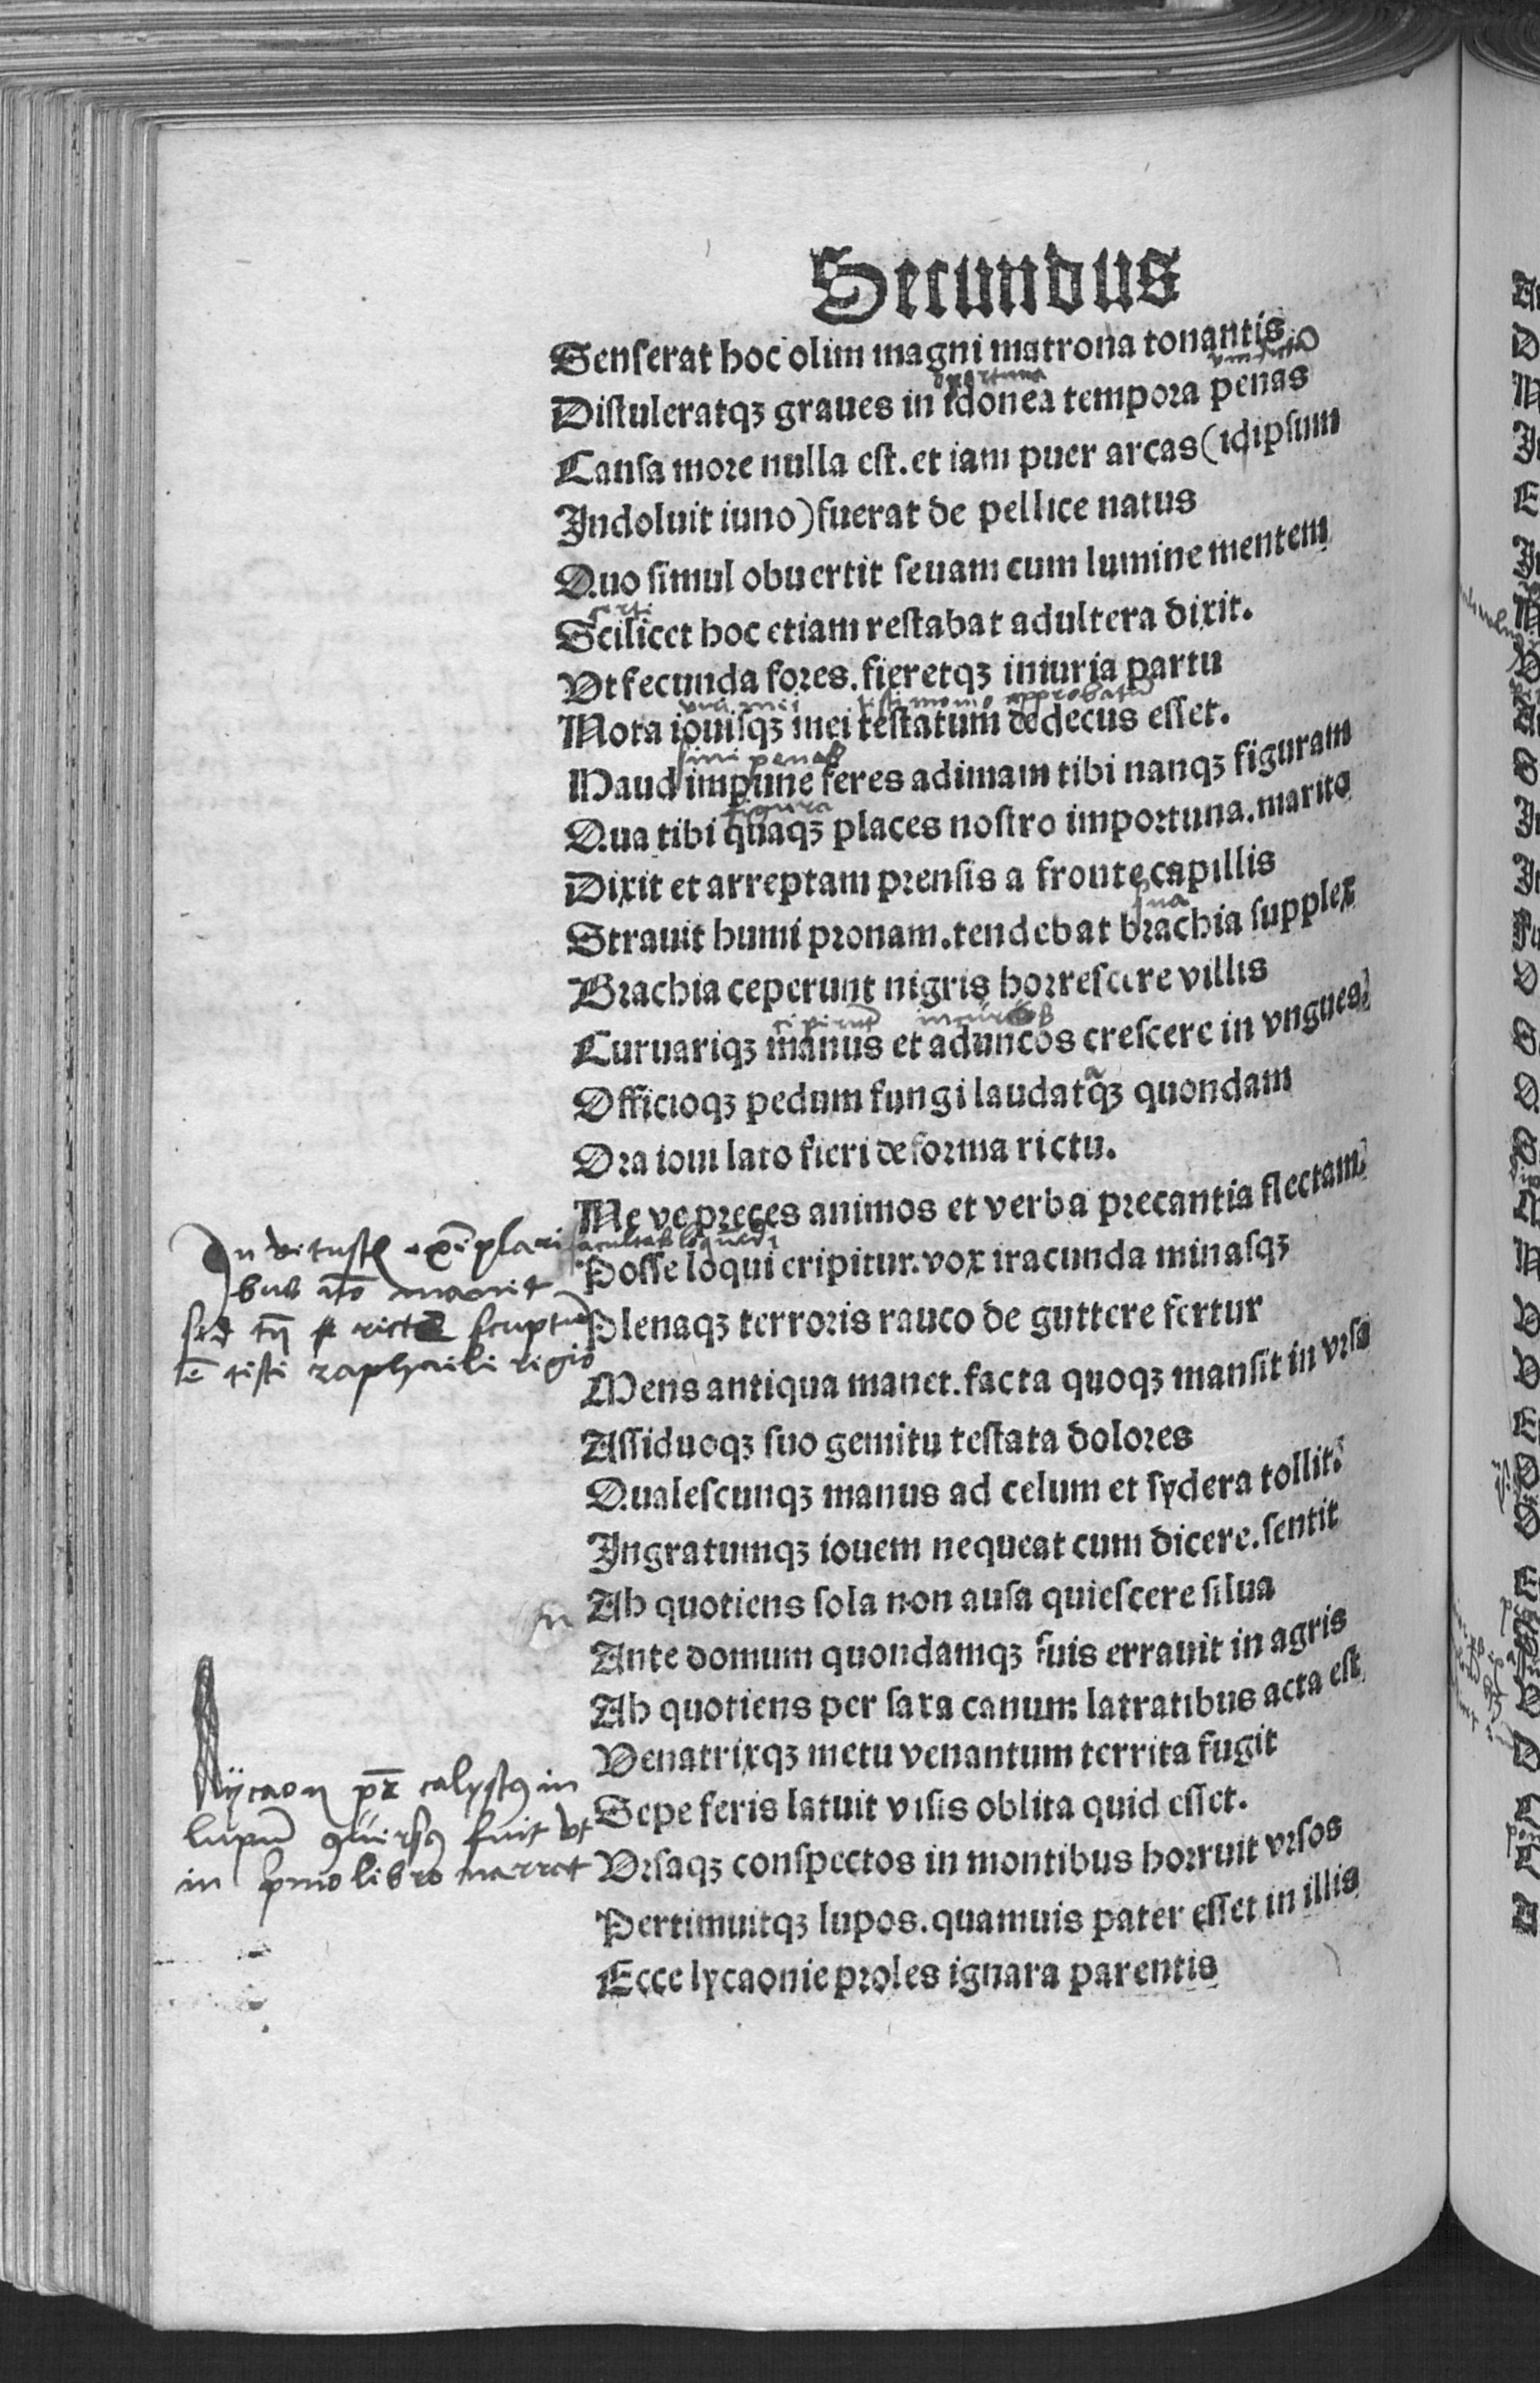 Secundus
Senserat hoc olim magni matrona tonantis
vindictā
Distuleratqꝫ graues in idonea tempora penas
oportuna
Causa more nulla est. et iam puer arcas (idipsum
Indoluit iuno) fuerat de pellice natus
Quo simul obuertit seuam cum lumine mentem
certi
Scilicet hoc etiam restabat adultera dixit.
Vt fecunda fores. fieretqꝫ iniuria partu
viri mei testimonio approbatū
Nota iouisqꝫ mei testatum dedecus esset.
sini penaß
Haud impune feres adimam tibi nanqꝫ figuram
figura
Qua tibi quaqꝫ places nostro importuna. marito
Dixit et arreptam prensis a fronte capillis
sua
Strauit humi pronam. tendebat brachia supplex
Brachia ceperunt nigris horrescere villis
Curuariqꝫ manus et aduncos crescere in vngues
Officioqꝫ pedum fungi laudatqꝫ quondam
a
Ora ioui lato fieri deformia rictu.
Ne ve preces animos et verba precantia flectam
facultaß loquēdi
Posse loqui eripitur. vox iracunda minasqꝫ
Plenaqꝫ terroris rauco de guttere fertur
Mens antiqua manet. facta quoqꝫ mansit in vrsa
Assiduoqꝫ suo gemitu testata dolores
Qualescunqꝫ manus ad celum et sydera tollit.
Ingratumqꝫ iouem nequeat cum dicere. sentit
Ah quotiens sola non ausa quiescere silua
Ante domum quondamqꝫ suis errauit in agris
Ah quotiens per saxa canum latratibus acta est
Venatrixqꝫ metu venantum territa fugit
Sepe feris latuit visis oblita quid esset.
Vrsaqꝫ conspectos in montibus horruit vrsos
Pertimuitqꝫ lupos. quamuis pater esset in illis
Ecce lycaonie proles ignara parentis
In vetustꝭ exēplari
bus nō manet
sed scriptū
ē testi raphaeli regio
lycaon pr̄ calystꝰ in
lupū ꝯuersꝰ fuit vt
in pmo libro narrat